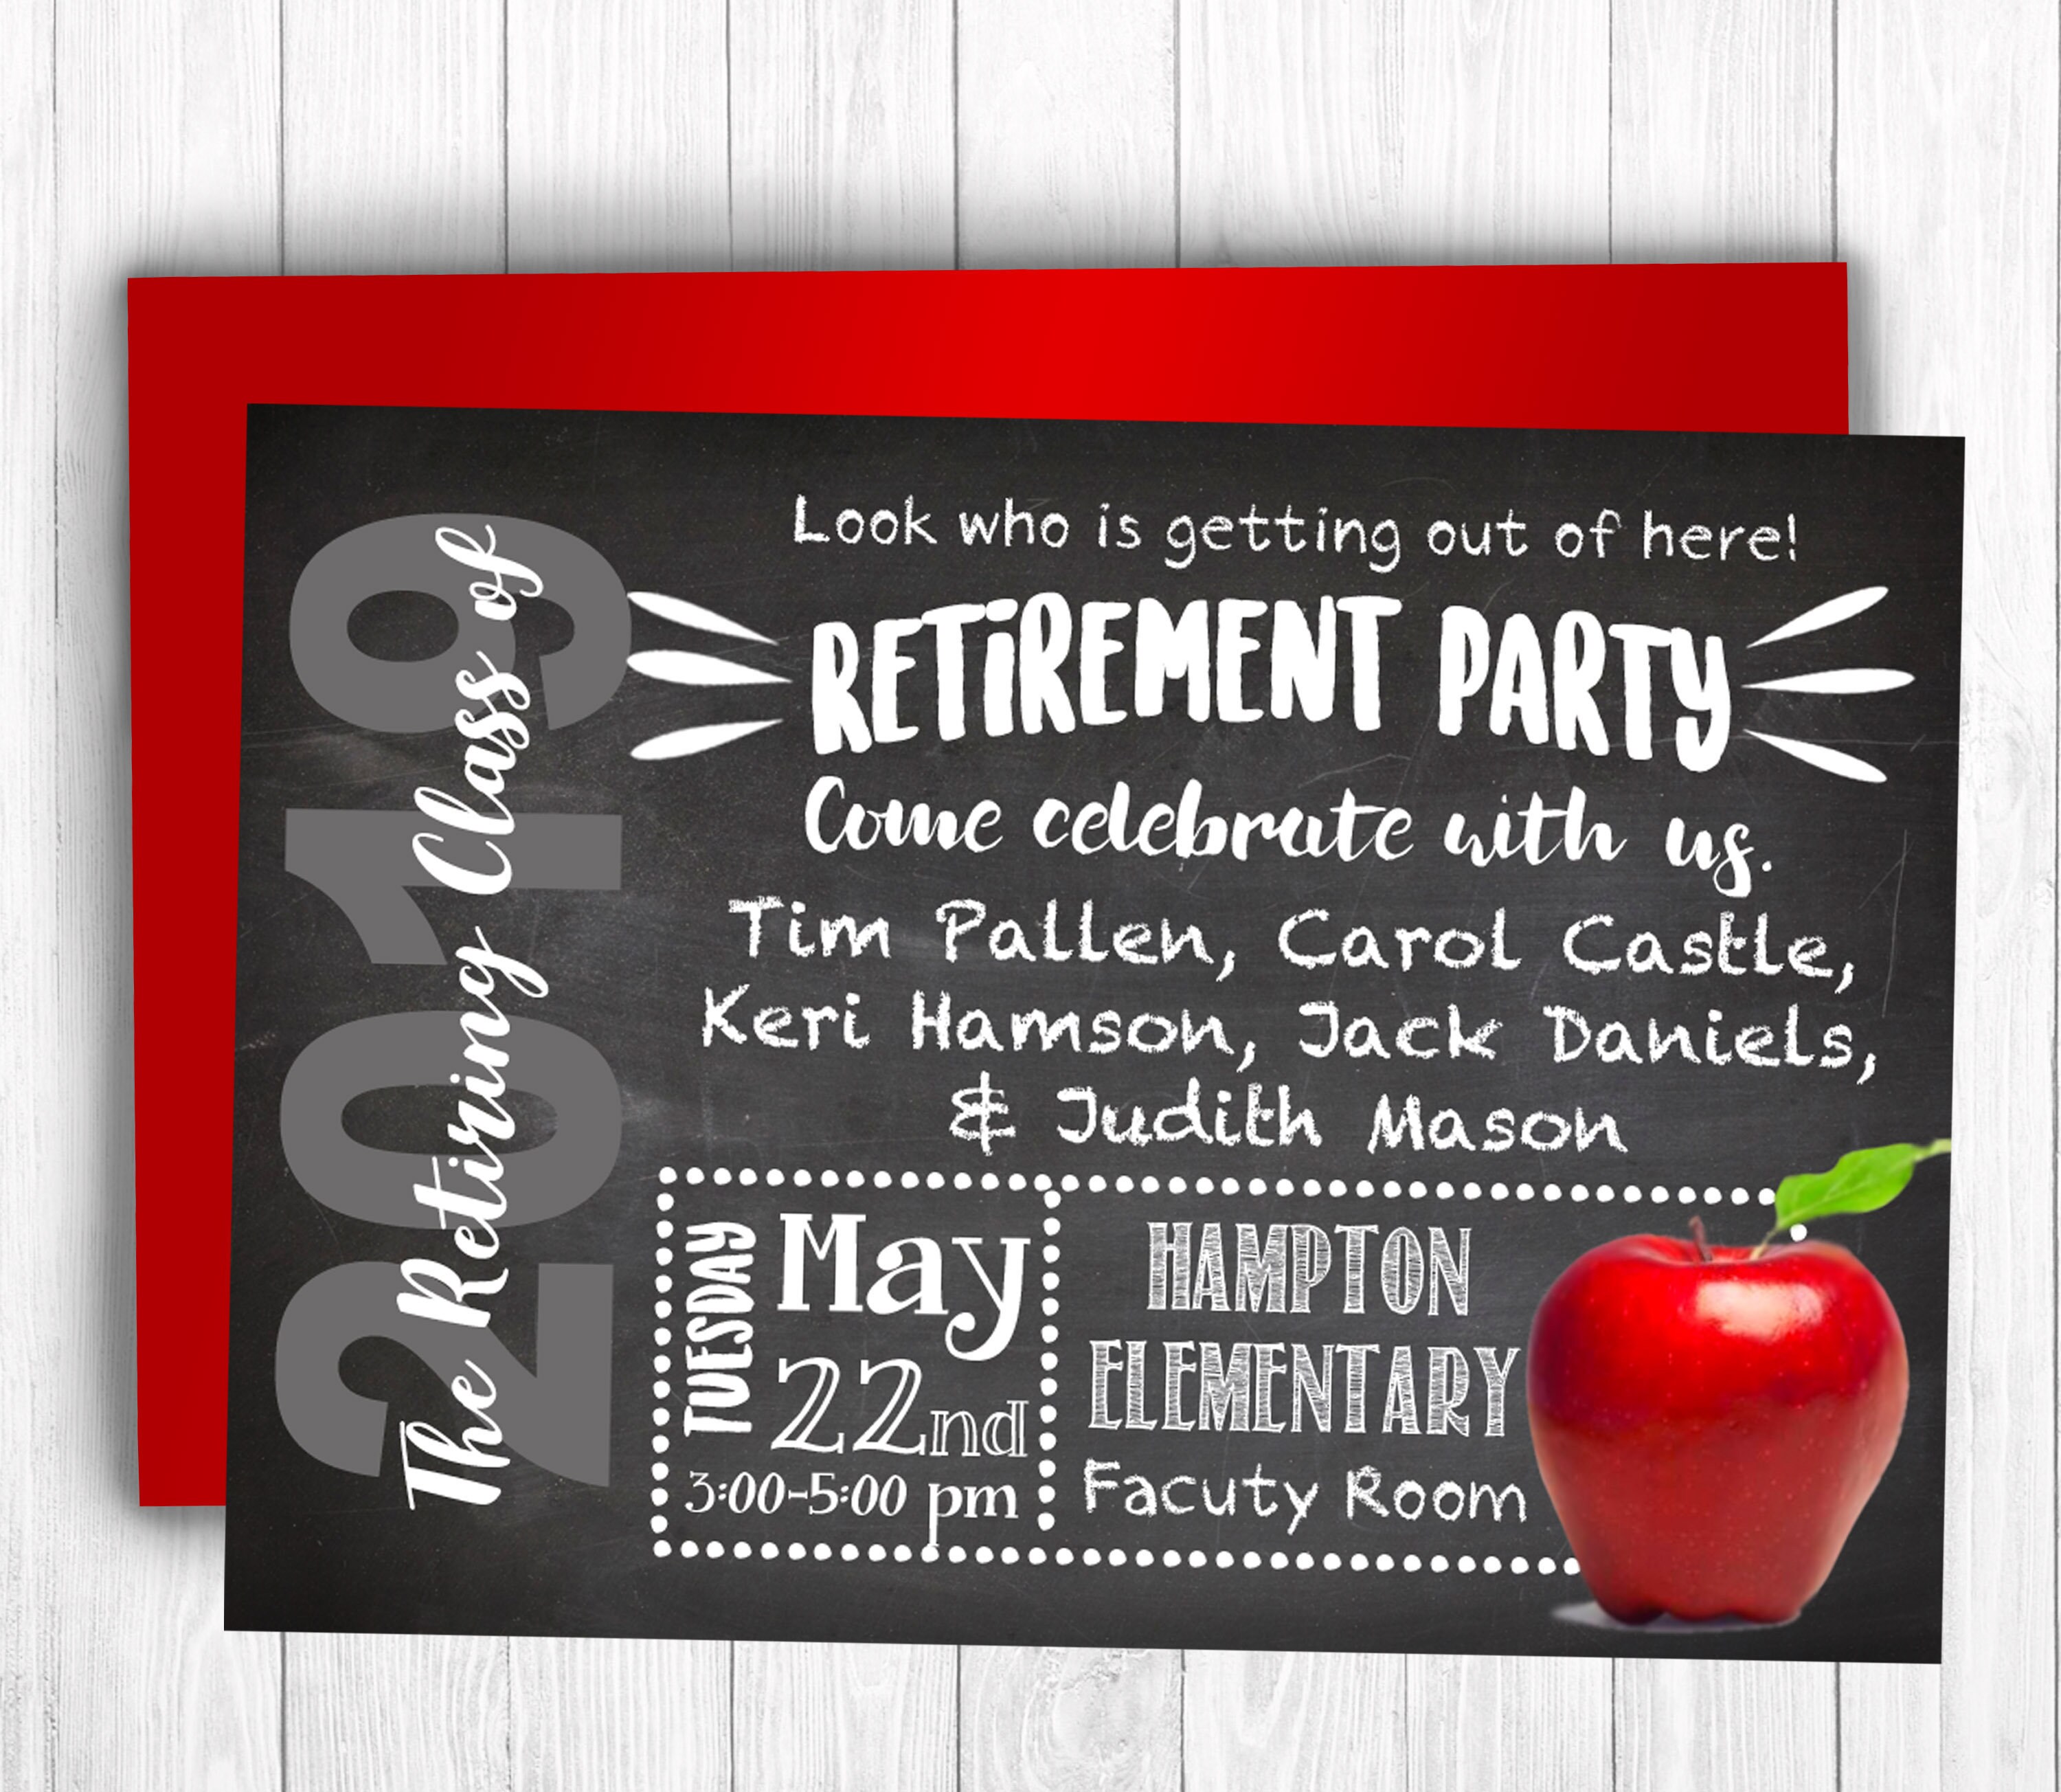 The Retiring Class of
2019
Look who is getting out of here!
RETIREMENT PARTY
Come celebrate with us.
Tim Pallen, Carol Castle,
Keri Hamson, Jack Daniels,
& Judith Mason
TUESDAY
May
22nd
3:00-5:00 pm
HAMPTON
ELEMENTARY
Facuty Room